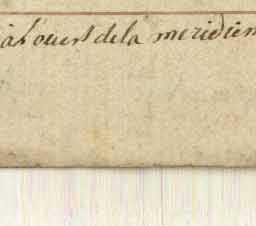 à l'ouest de la meridien